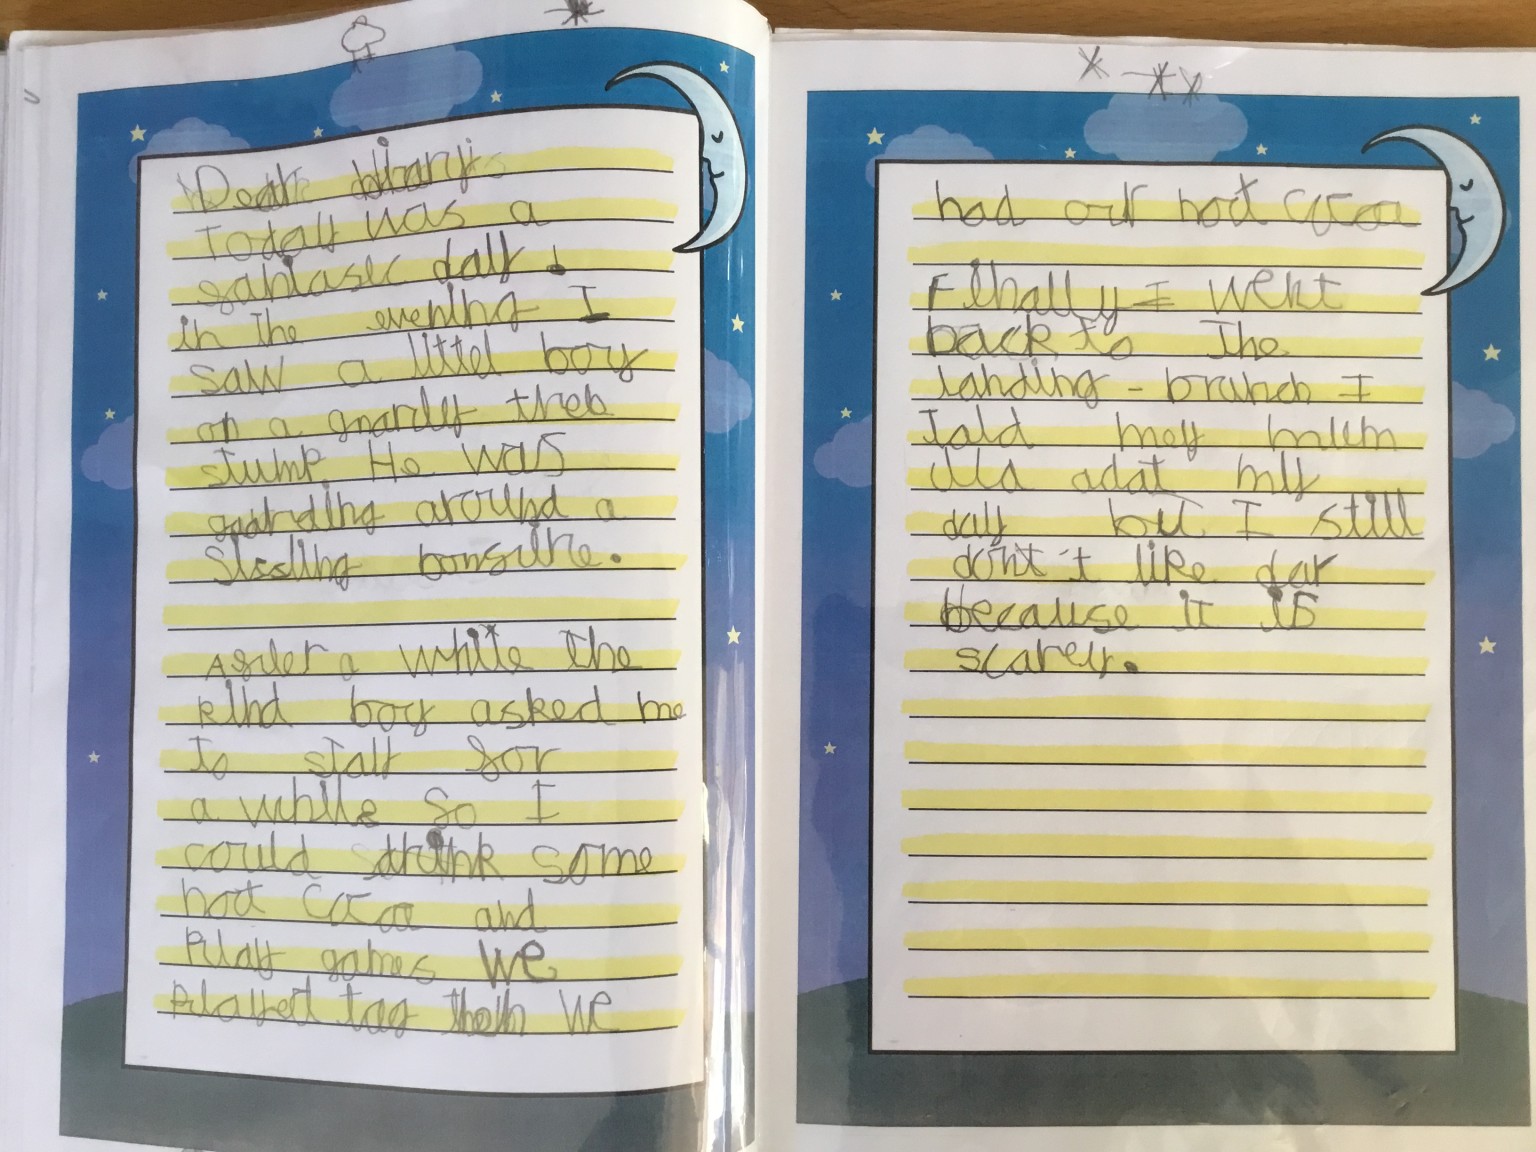 Dear diary
Today was a
fantasic day!
in the evening I
saw a littel boy
on a gnarley treb
stump He was
guarding around a
Sissling bonfire.
After a while the
kind boy asked me
to stay for
a while so I
could drink some
hot Cocoa and
Play games We
Played tag then we
had our hot Cocoa
Finally I went
back to the
landing - branch I
Told mey mum
my
day but I still
dont't like dar
because it is
scarey.